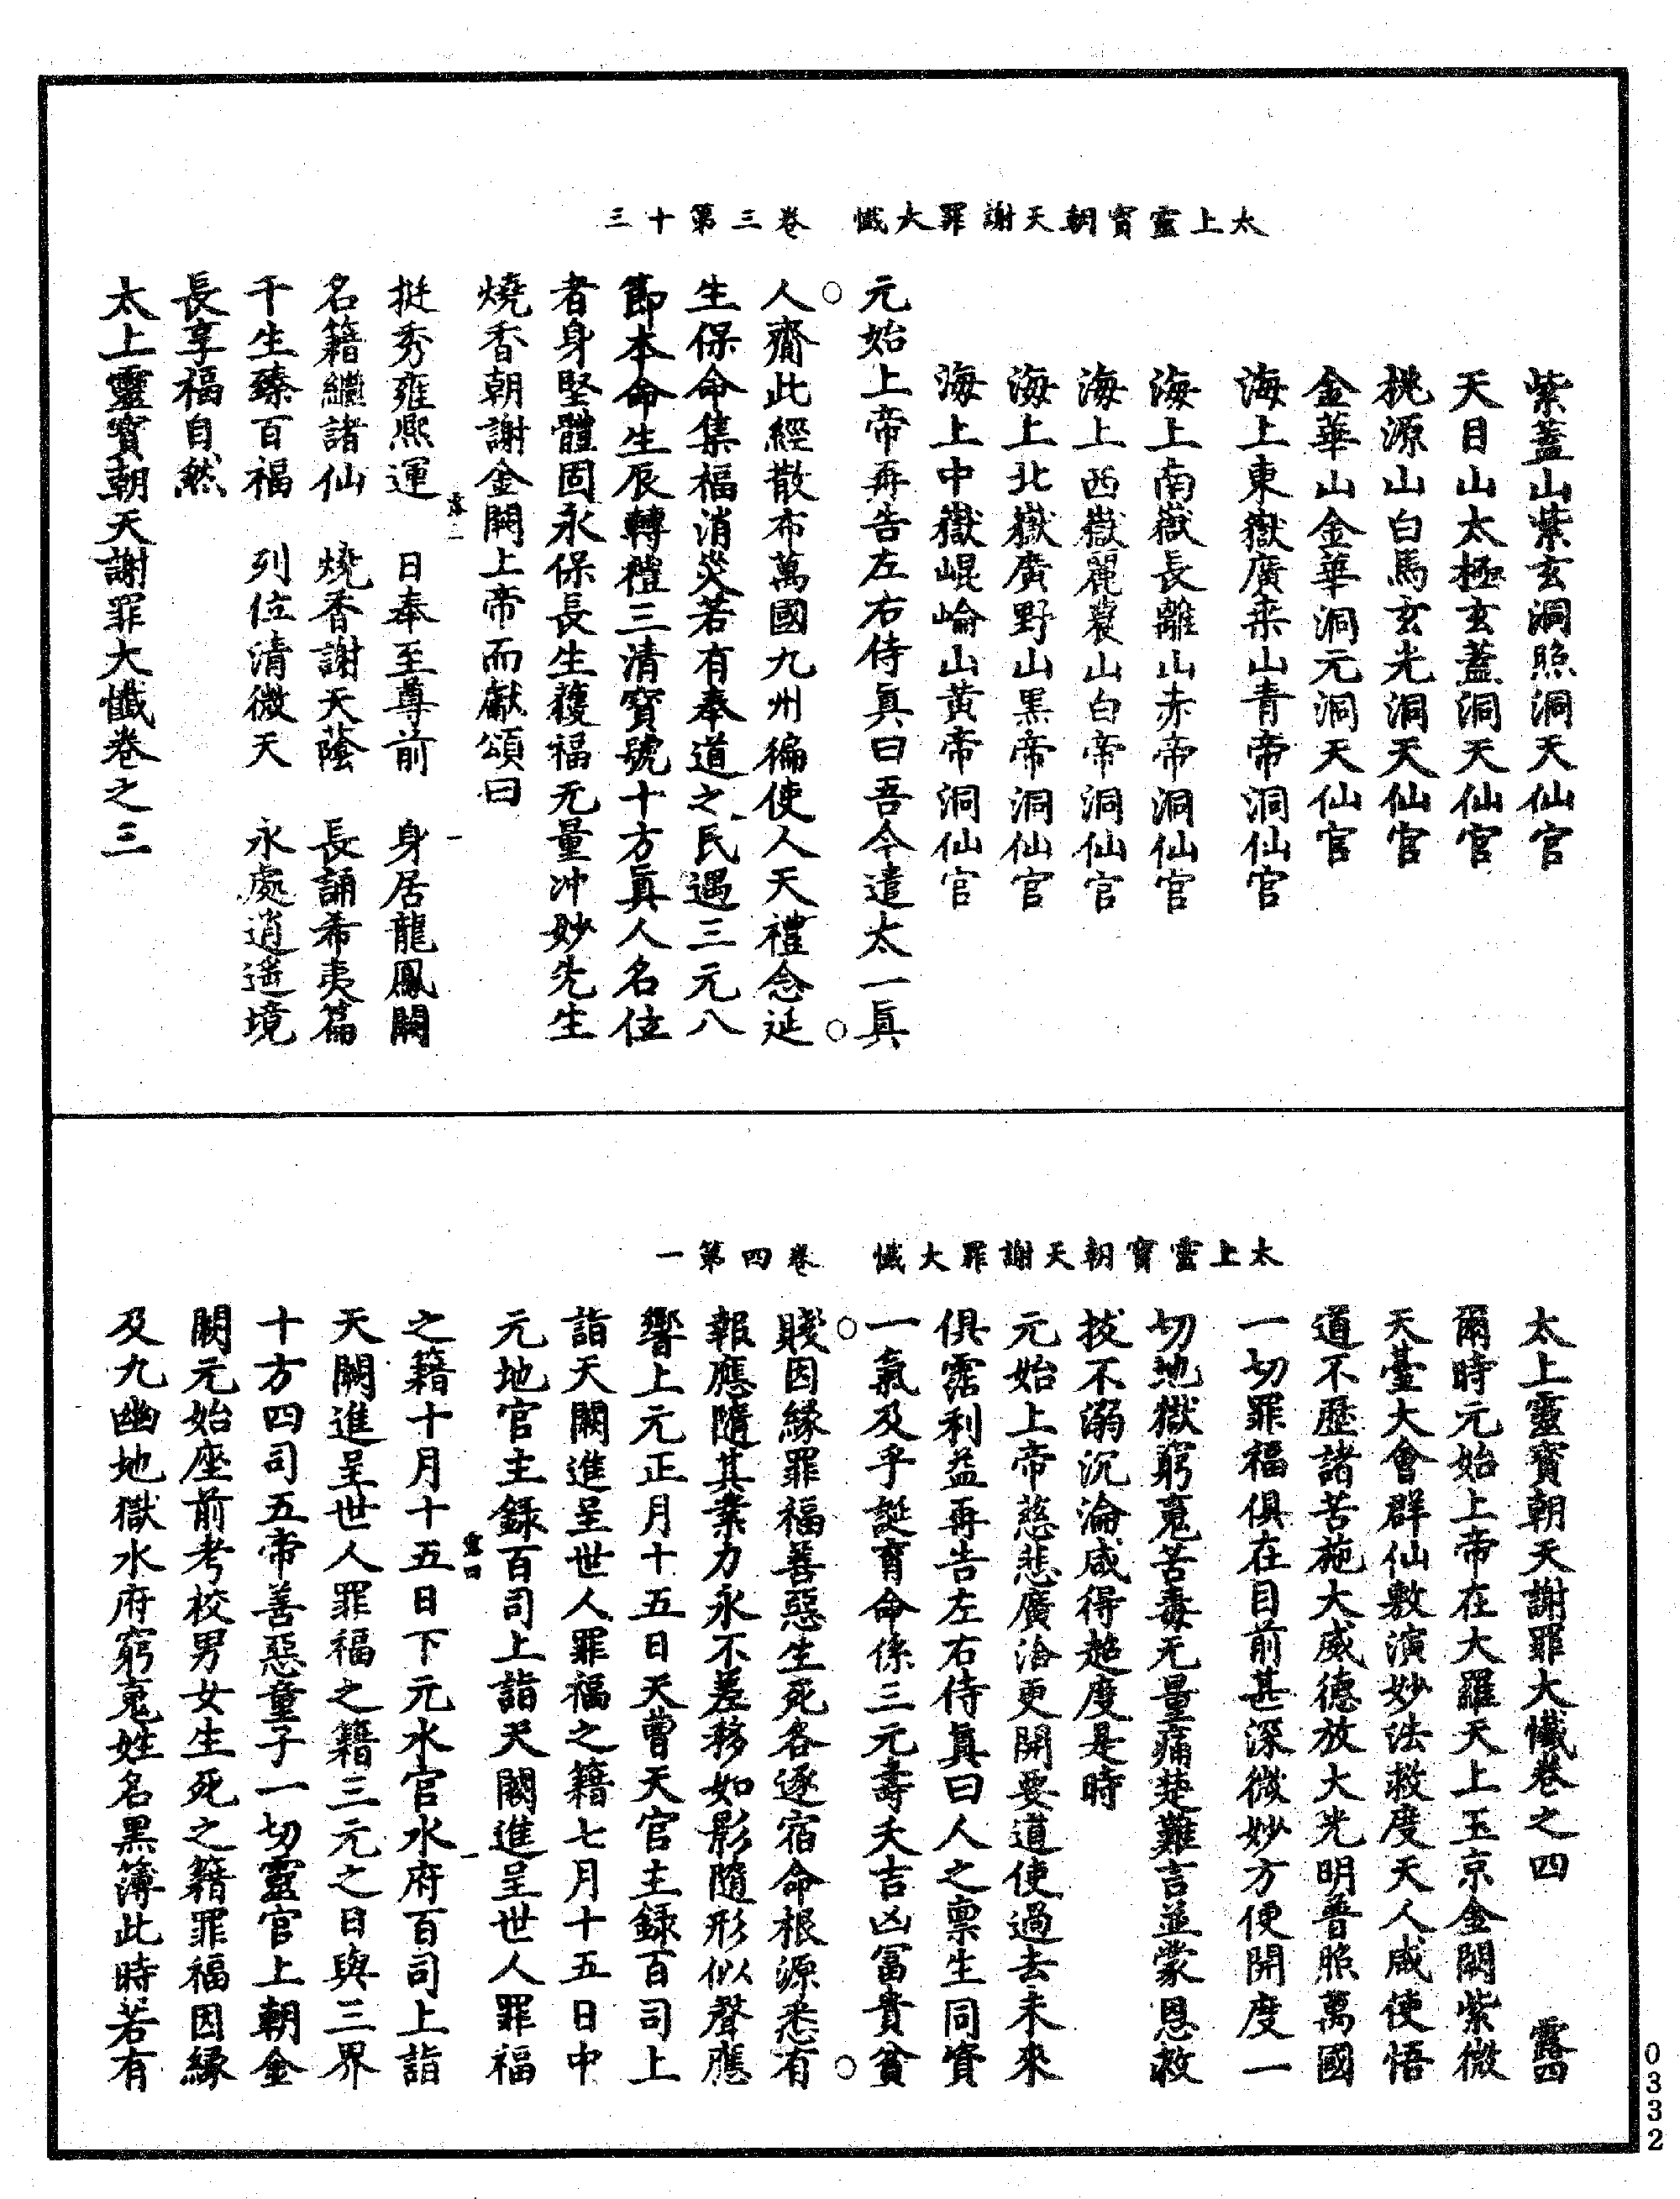 太上靈寳朝天謝罪大懺　卷三第十三
紫蓋山紫玄洞照洞天仙官
天目山太極玄蓋洞天仙官
桃源山白馬玄光洞天仙官
金華山金華洞元洞天仙官
海上東嶽廣桒山青帝洞仙官
海上南嶽長離山赤帝洞仙官
海上西嶽麗農山白帝洞仙官
海上北嶽廣野山黒帝洞仙官
海上中嶽崐崘山黃帝洞仙官
元始上帝再告左右侍眞曰吾今遣太一眞
人齎此經散布萬國九州徧使人天禮念延
生保命集福消災若有奉道之民遇三元八
節本命生辰轉禮三清寳號十方眞人名位
者身堅體固永保長生穫福无量冲妙先生
燒香朝謝金闕上帝而獻頌曰
挺秀雍熈運　日奉至尊前　身居龍鳳闕
名籍繼諸仙　燒香謝天蔭　長誦希夷篇
千生臻百福　列位清微天　永處逍遥境
長享福自然
太上靈寳朝天謝罪大懺卷之三
太上靈寳朝天謝罪大懺　卷四第一
太上靈寳朝天謝罪大懺卷之四　露四
爾時元始上帝在大羅天上玉京金闕紫微
天臺大會群仙敷演妙法救度天人咸使悟
道不歷諸苦施大威德放大光明普照萬國
一切罪福俱在目前甚深微妙方便開度一
切地獄窮䰟苦毒无量痛楚難言並蒙恩救
拔不溺沉淪咸得超度是時
元始上帝慈悲廣洽更開要道使過去未來
俱霑利益再告左右侍眞曰人之禀生同資
一氣及乎誕育命係三元壽夭吉凶冨貴貧
賤因緣罪福善惡生死各逐宿命根源悉有
報應隨其業力永不差移如影隨形似聲應
響上元正月十五日天曹天官主録百司上
詣天闕進呈世人罪福之籍七月十五日中
元地官主録百司上詣天闕進呈世人罪福
之籍十月十五日下元水官水府百司上詣
天闕進呈世人罪福之籍三元之日與三界
十方四司五帝善惡童子一切靈官上朝金
闕元始座前考校男女生死之籍罪福因緣
及九幽地獄水府窮䰟姓名黒簿此時若有
0332